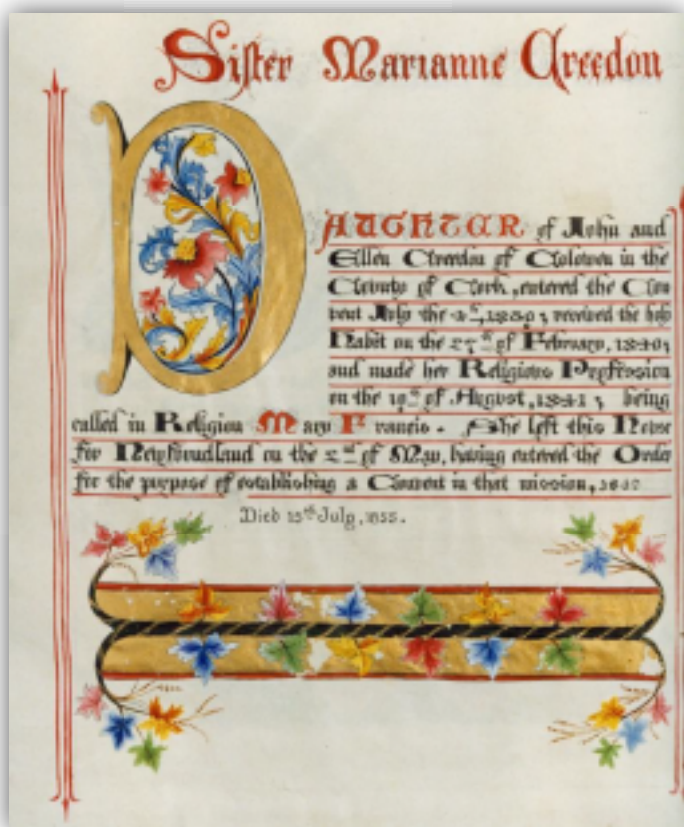 Sister Marianne Creedon
DAUGHTER of John and
Ellen Creedon of in the
County of Cork, entered the Con
vent July the 1839; received the holy
Habit on the 27th of February, 1840;
and made her Religious Profession
on the 19th of August, 1841; being
called in Religion Mary Francis. She left this House
for Newfoundland on the 2nd of May, having entered the Order
for the purpose of establishing a Convent in that mission,
Died 15th July, 1855.